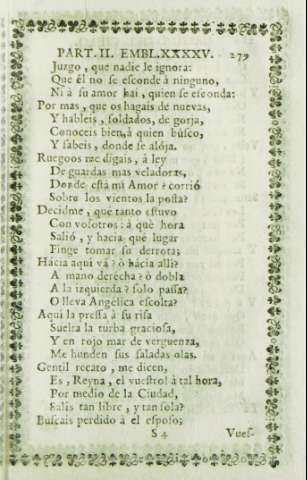 PART. II. EMBL.XXXXV. 279
Juzgo, que nadie le ignora:
Que èl no se esconde à ninguno,
Ni à su amor hai, quien se esconda:
Por mas, que os hagais de nuevas,
Y hableis, soldados, de gorja,
Conoceis bien, à quien busco,
Y sabeis, donde se alója.
Ruegoos me digais, á ley
De guardas mas veladoras,
Donde está mi Amor? corrió
Sobre los vientos la posta?
Decidme, què tanto estuvo
Con vosotros: à què hora
Saliò, y hacia què lugar
Finge tomar su derrota;
Hácia aqui vá? ò hácia alli?
A mano derecha? ò dobla
A la izquierda? solo passa?
O lleva Angèlica escolta?
Aqui la pressa à su risa
Suelta la turba graciosa,
Y en rojo mar de verguenza,
Me hunden sus saladas olas.
Gentil recato, me dicen,
Es, Reyna, el vuestro! à tal hora,
Por medio de la Ciudad,
Salis tan libre, y tan sola?
Buscais perdido à el esposo;
S 4 Vues-